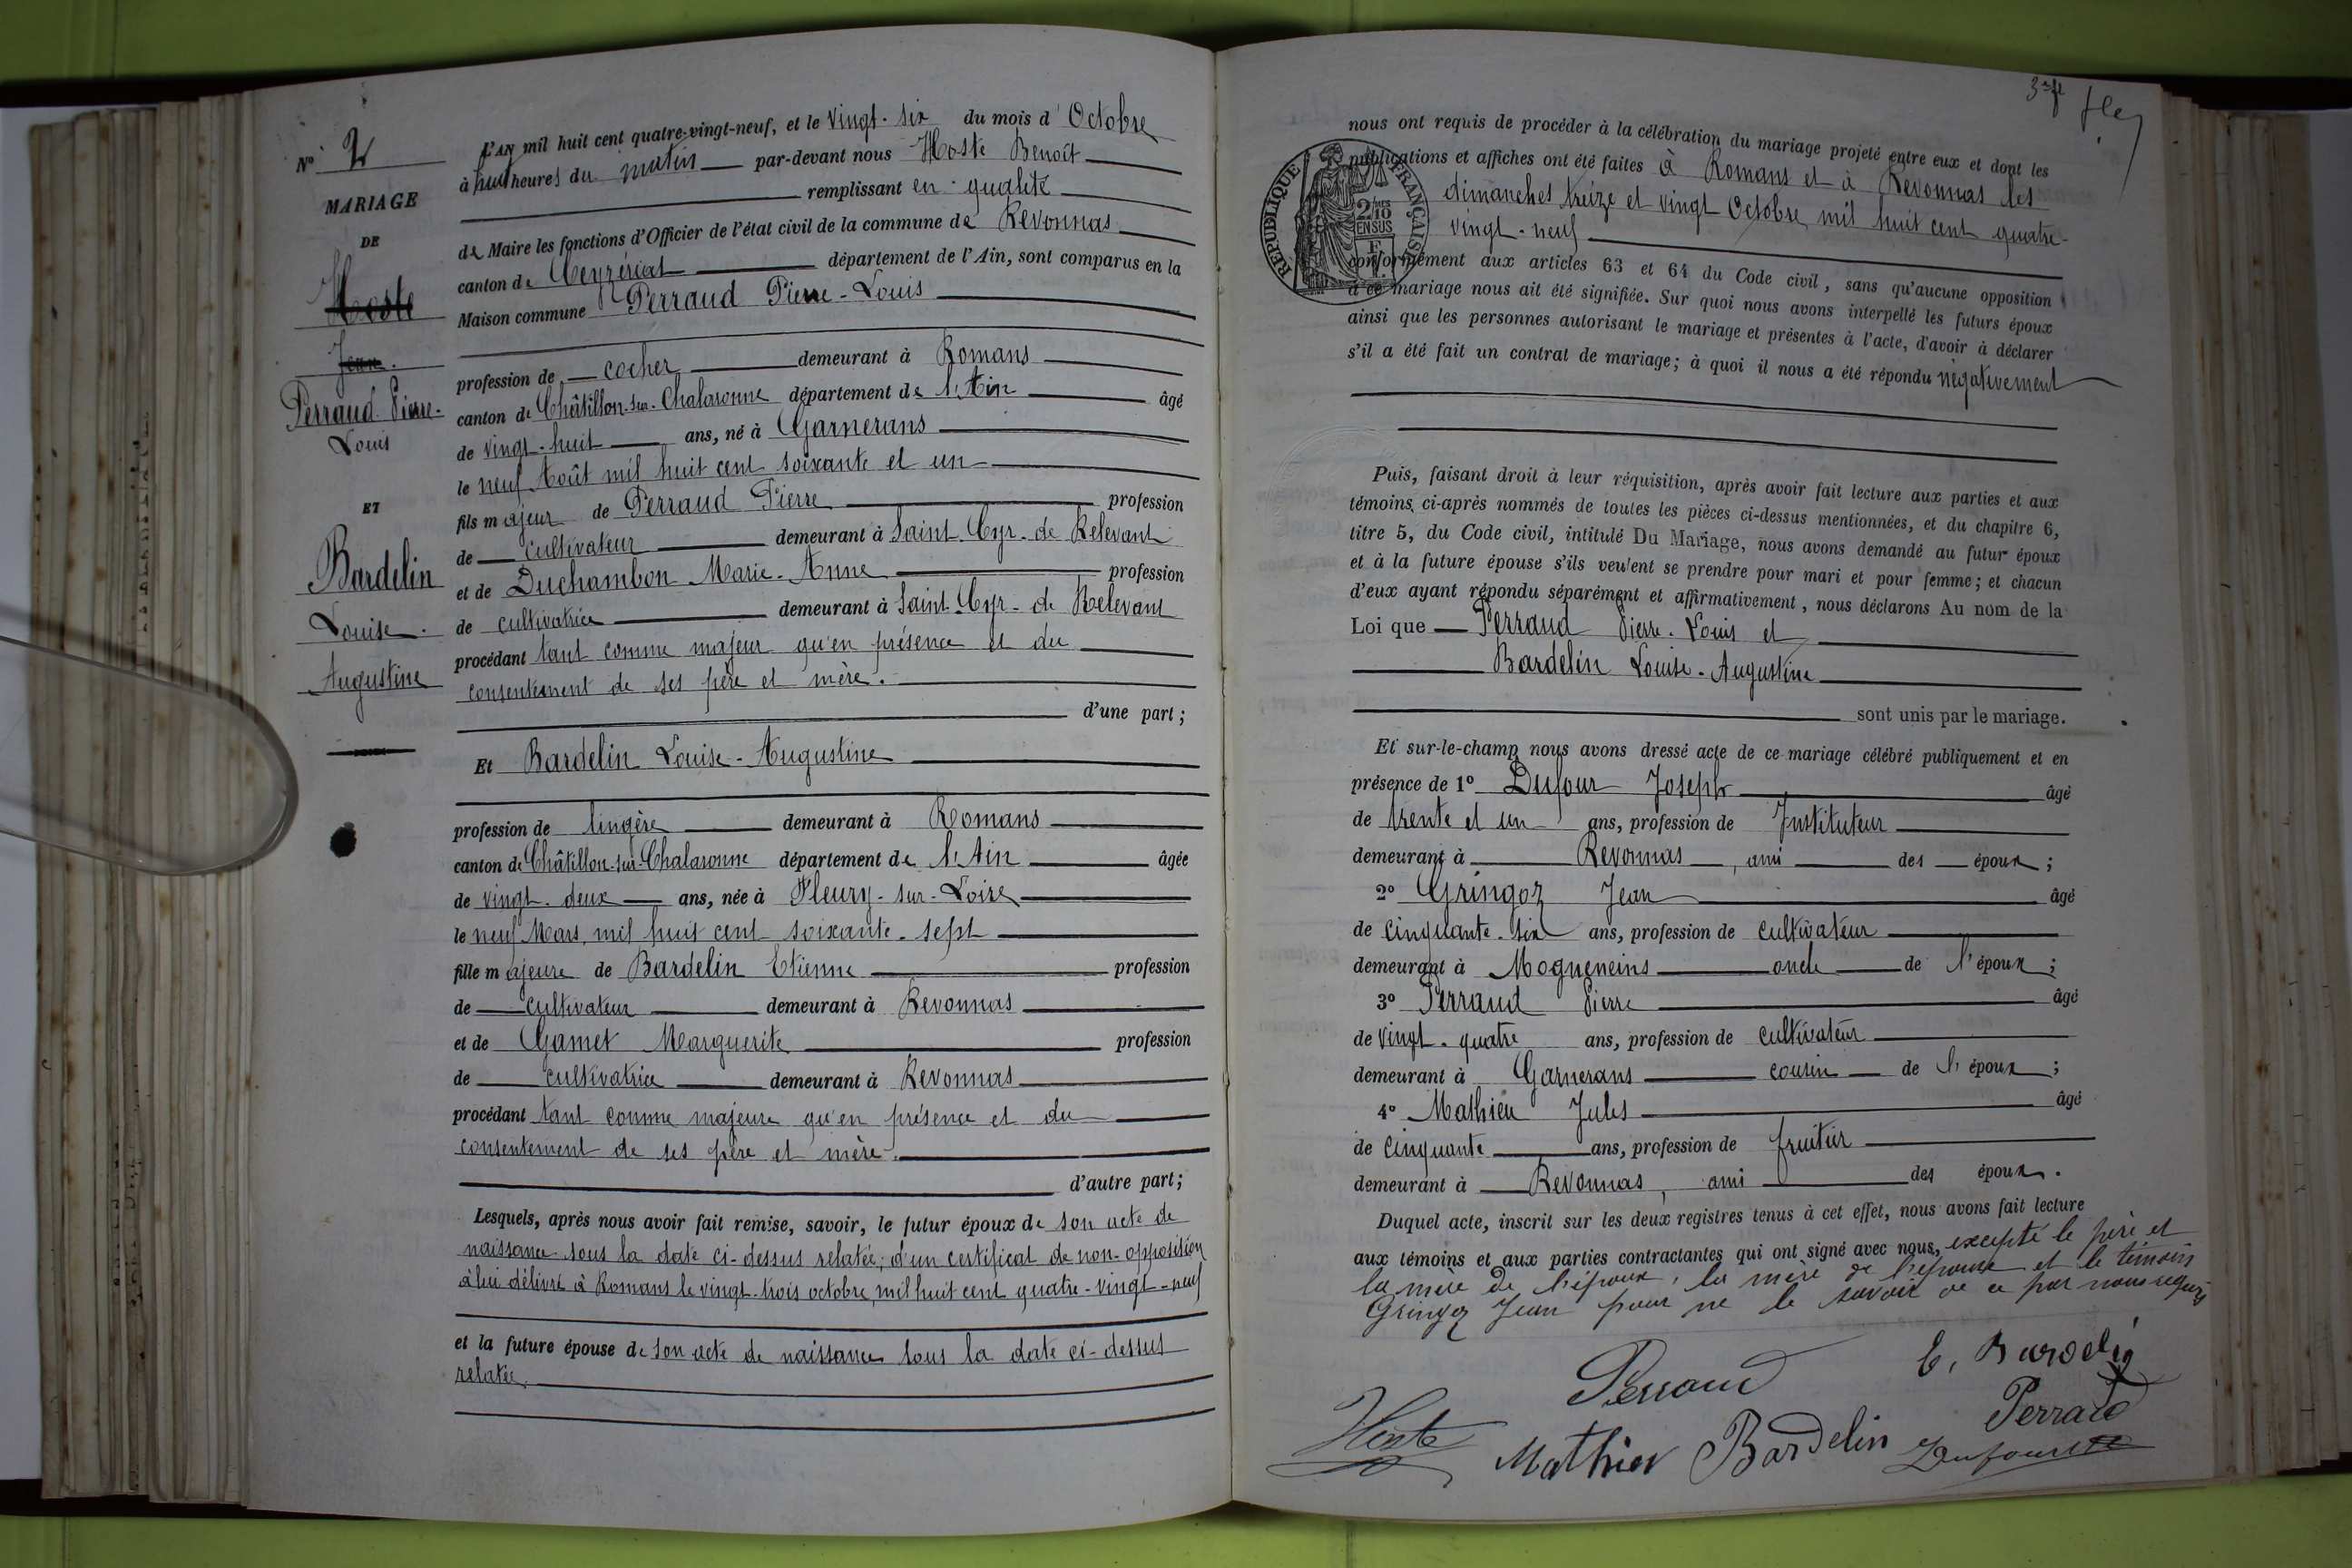 N° 2
MARIAGE
DE
Hoste
Jean.
Perraud Pierre-
Louis
ET
Bardelin
Louise-
Augustine
L'AN mil huit cent quatre-vingt-neuf, et le vingt-six du mois d'Octobre
à heures du matin par-devant nous Hoste Benoît
remplissant en qualité
de Maire les fonctions d'Officier de l'état civil de la commune de Revonnas
canton de Ceyzériat département de l'Ain, sont comparus en la
Maison commune Perraud Pierre-Louis
profession de cocher demeurant à Romans
canton de Châtillon-sur-Chalaronne département de l'Ain âgé
de vingt-huit ans, né à Garnerans
le neuf Août mil huit cent soixante et un
fils majeur de Perraud Pierre profession
de cultivateur demeurant à Saint-Cyr-de Relevant
et de Duchambon Marie-Anne profession
de cultivatrice demeurant à Saint-Cyr-de Relevant
procédant tant comme majeur qu'en présence et du
consentement de ses père et mère.
d'une part;
Et Bardelin Louise-Augustine
profession de lingère demeurant à Romans
canton de Châtillon-sur-Chalaronne département de l'Ain âgée
de vingt-deux ans, née à Fleury-sur-Loire
le neuf Mars mil huit cent soixante-sept
fille majeure de Bardelin Etienne profession
de cultivateur demeurant à Revonnas
et de Gamet Marguerite profession
de cultivatrice demeurant à Revonnas
procédant tant comme majeure qu'en présence et du
consentement de ses père et mère.
d'autre part;
Lesquels, après nous avoir fait remise, savoir, le futur époux de son acte de
naissance sous la date ci-dessus relatée; d'un certificat de non-opposition
à lui délivré à Romans le vingt-trois octobre, mil huit cent quatre-vingt-neuf
et la future épouse de son acte de naissance sous la date ci-dessus
relatée.
nous ont requis de procéder à la célébration du mariage projeté entre eux et dont les
publications et affiches ont été faites à Romans et à Revonnas les
dimanches treize et vingt Octobre mil huit cent quatre-
vingt-neuf
RÉPUBLIQUE FRANÇAISE
2/10 EN SUS
conformément aux articles 63 et 64 du Code civil, sans qu'aucune opposition
à ce mariage nous ait été signifiée. Sur quoi nous avons interpellé les futurs époux
ainsi que les personnes autorisant le mariage et présentes à l'acte, d'avoir à déclarer
s'il a été fait un contrat de mariage; à quoi il nous a été répondu négativement
Puis, faisant droit à leur réquisition, après avoir fait lecture aux parties et aux
témoins ci-après nommés de toutes les pièces ci-dessus mentionnées, et du chapitre 6,
titre 5, du Code civil, intitulé Du Mariage, nous avons demandé au futur époux
et à la future épouse s'ils veulent se prendre pour mari et pour femme; et chacun
d'eux ayant répondu séparément et affirmativement, nous déclarons Au nom de la
Loi que Perraud Pierre-Louis et
Bardelin Louise-Augustine
sont unis par le mariage.
Et sur-le-champ nous avons dressé acte de ce mariage célébré publiquement et en
présence de 1° Dufour Joseph âgé
de trente et un ans, profession de Instituteur
demeurant à Revonnas, ami des époux;
2° Gringoz Jean âgé
de cinquante-six ans, profession de cultivateur
demeurant à Mogneneins oncle de l'époux;
3° Perraud Pierre âgé
de vingt-quatre ans, profession de cultivateur
demeurant à Garnerans cousin de l'époux;
4° Mathieu Jules âgé
de cinquante ans, profession de fruitier
demeurant à Revonnas, ami des époux.
Duquel acte, inscrit sur les deux registres tenus à cet effet, nous avons fait lecture
aux témoins et aux parties contractantes qui ont signé avec nous, excepté le père et
la mère de l'époux, la mère de l'épouse et le témoin
Gringoz Jean pour ne le savoir de ce par nous requis
Perraud
E. Bardelin
Hoste
Mathieu
Bardelin
Perraud
Dufour